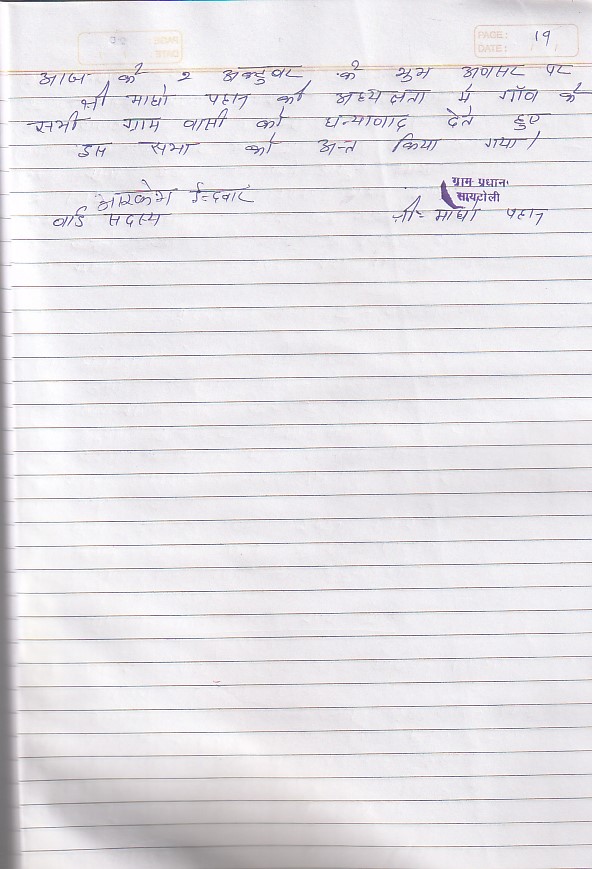 PAGE: 19
DATE: / /
आज के २ अक्टुवर के शुभ अवसर पर
श्री माघो पहान की अध्यक्षता में गाँव के
सभी ग्राम वासी को धन्यावाद देते हुए
इस सभा को अन्त किया गया।
ग्राम प्रधान
सायटोली
ईन्दवार
वार्ड सदस्य
श्री= माघो पहान